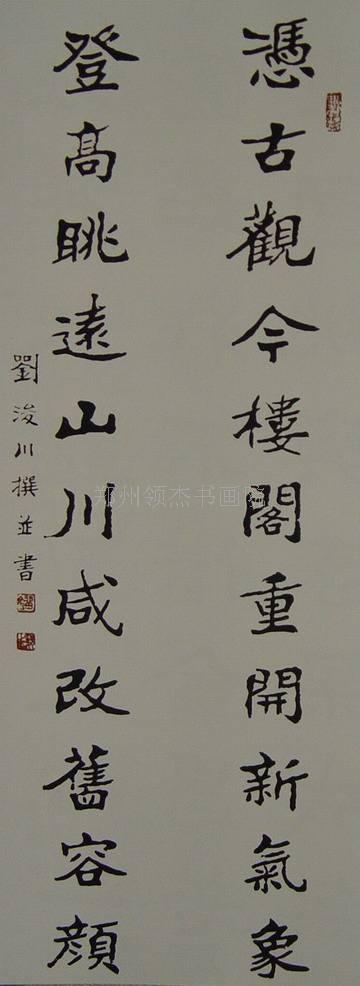 憑古觀今樓閣重開新氣象
登高眺遠山川咸改舊容顏
劉浚川撰並書
郑州领杰书画院